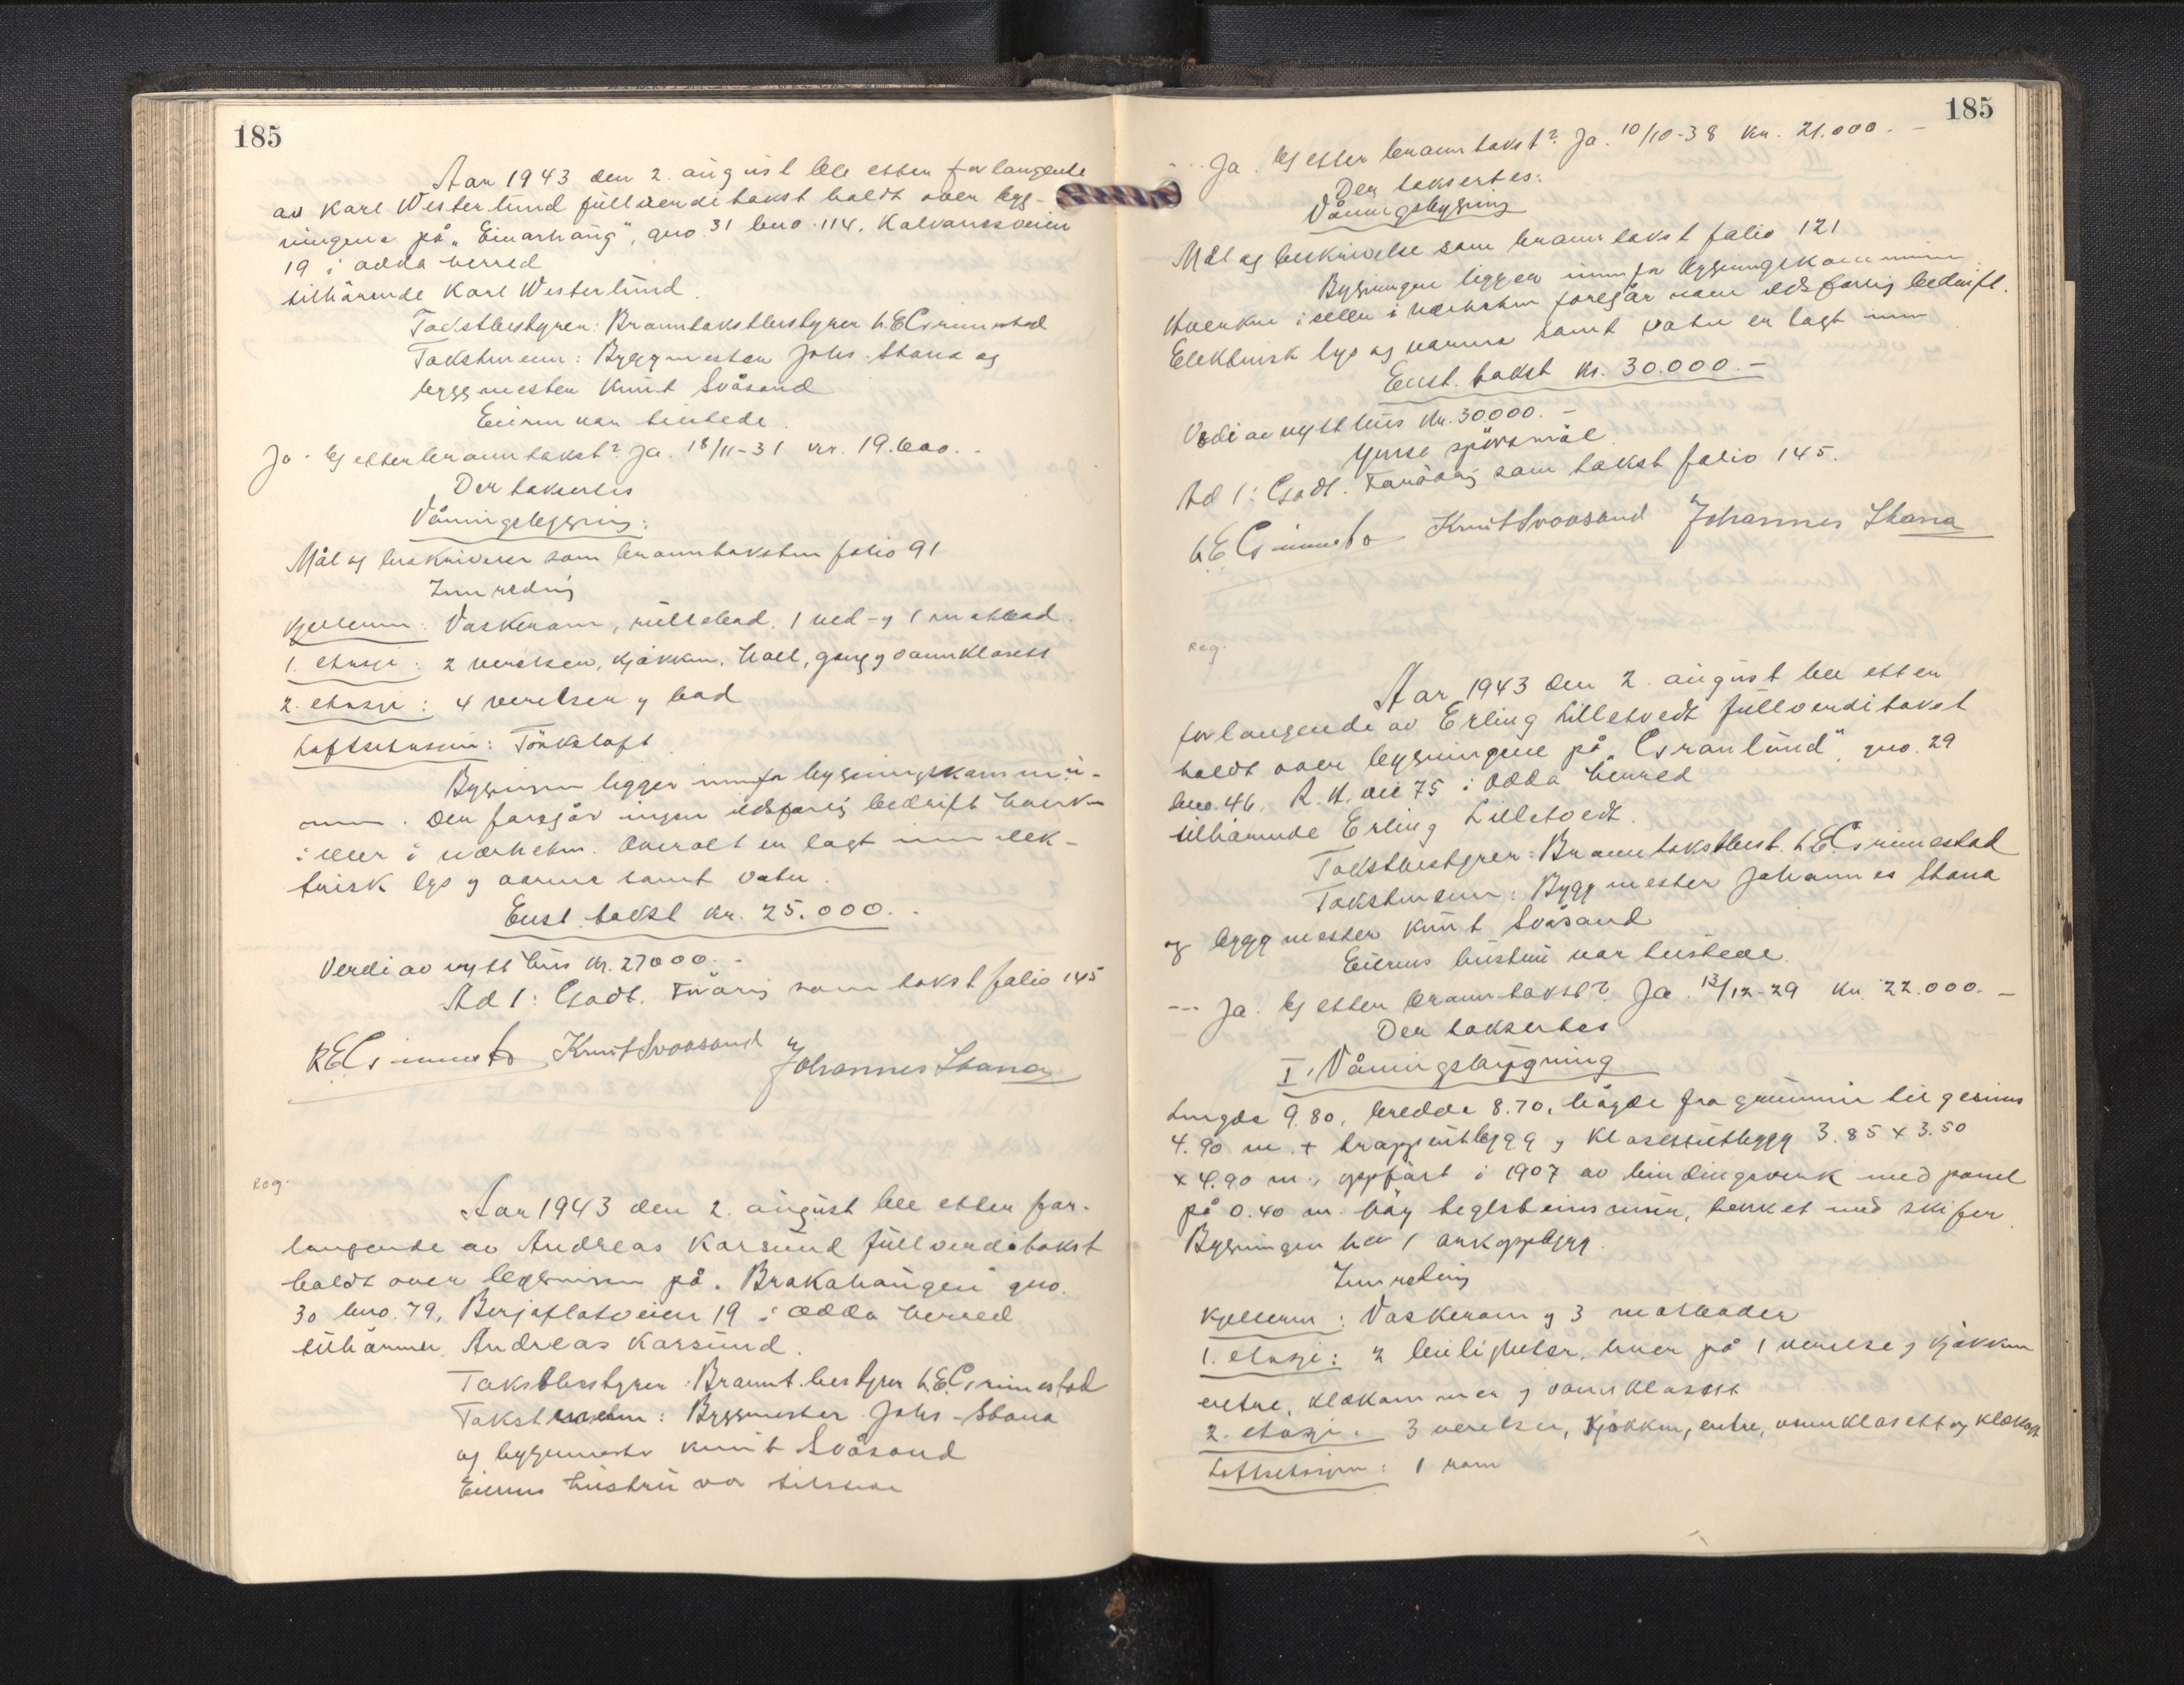 185
Aar 1943 den 2. august ble etter forlangende
av Karl Westerlund fullverditakst holdt over byg-
ningene på "Einarhaug", gno. 31 bno. 114, Kalvanesveien
19 i Odda herred
tilhörende Karl Westerlund.
Takstbestyrer: Branntakstbestyrer L. E. Grimestad
Takstmenn: Byggmester Johs. Stana og
byggmester Knut Svåsand
Eieren var tilstede.
Ja. Ej etter branntakst? Ja. 18/11-31 kr. 19.600.-
Der taksertes
Våningsbygning:
Mål og beskrivelse som branntaksten folio 91
Innredning
Kjelleren: Vaskerom, rullebod, 1 ved- og 1 matbod.
1. etasje: 2 værelser, kjökken, hall, gang og vannklosett
2. etasje: 4 værelser og bad
Loftsetasjen: Törkeloft.
Bygningen ligger innenfor bygningskommu-
nen. Der foregår ingen ildsfarlig bedrift hverken
i eller i nærheten. Overalt er lagt inn elek-
trisk lys og varme samt vatn.
Enst. takst kr. 25.000.-
Verdi av nytt hus kr. 27000.-
Ad 1: Godt. Forövrig som takst folio 145
L. E. Grimestad Knut Svaasand Johannes Stana
Reg.
Aar 1943 den 2. august ble etter for-
langende av Andreas Karsund fullverditakst
holdt over bygningen på "Brakahaugen" gno.
30 bno. 79, Berjaflotveien 19 i Odda herred
tilhörende Andreas Karsund.
Takstbestyrer: Brannt.bestyrer L. E. Grimestad
Takstmenn: Byggmester Johs. Stana
og byggmester Knut Svåsand
Eierens hustru var tilstede
185
--- Ja. Ej etter branntakst? Ja. 10/10-38 kr. 21.000.-
Der taksertes:
Våningsbygning
Mål og beskrivelse som branntakst folio 121
Bygningen ligger innenfor bygningskommunen.
Hverken i eller i nærheten foregår noen ildsfarlig bedrift.
Elektrisk lys og varme samt vatn er lagt inn
Enst. takst kr. 30.000.-
Verdi av nytt hus kr. 30000.-
Ymse spörsmål.
Ad 1: Godt. Forövrig som takst folio 145.
L. E. Grimestad Knut Svaasand Johannes Stana
Reg.
Aar 1943 den 2. august ble etter
forlangende av Erling Lilletvedt fullverditakst
holdt over bygningene på "Granlund", gno. 29
bno. 46, R. V. vei 75 i Odda herred
tilhörende Erling Lilletvedt.
Takstbestyrer: Branntakstbest. L. E. Grimestad
Takstmenn: Byggmester Johannes Stana
og byggmester Knut Svåsand
Eierens hustru var tilstede.
--- Ja. Ej etter branntakst? Ja. 13/12-29 kr. 22.000.-
Der taksertes
I. Våningsbygning
Lengde 9.80, bredde 8.70, höyde fra grunnmur til gesims
4.90 m. + trappeutbygg og klosettutbygg 3.85 x 3.50
x 4.90 m., oppfört i 1907 av bindingsverk med panel
på 0.40 m. höy teglsteinsmur, tekket med skifer.
Bygningen har 1 arkoppbygg.
Innredning
Kjelleren: Vaskerom og 3 matboder
1. etasje: 2 leiligheter, hver på 1 værelse og kjökken
entre, klekammer og vannklosett
2. etasje: 3 værelser, kjökken, entre, vannklosett og
Loftsetasjen: 1 rom